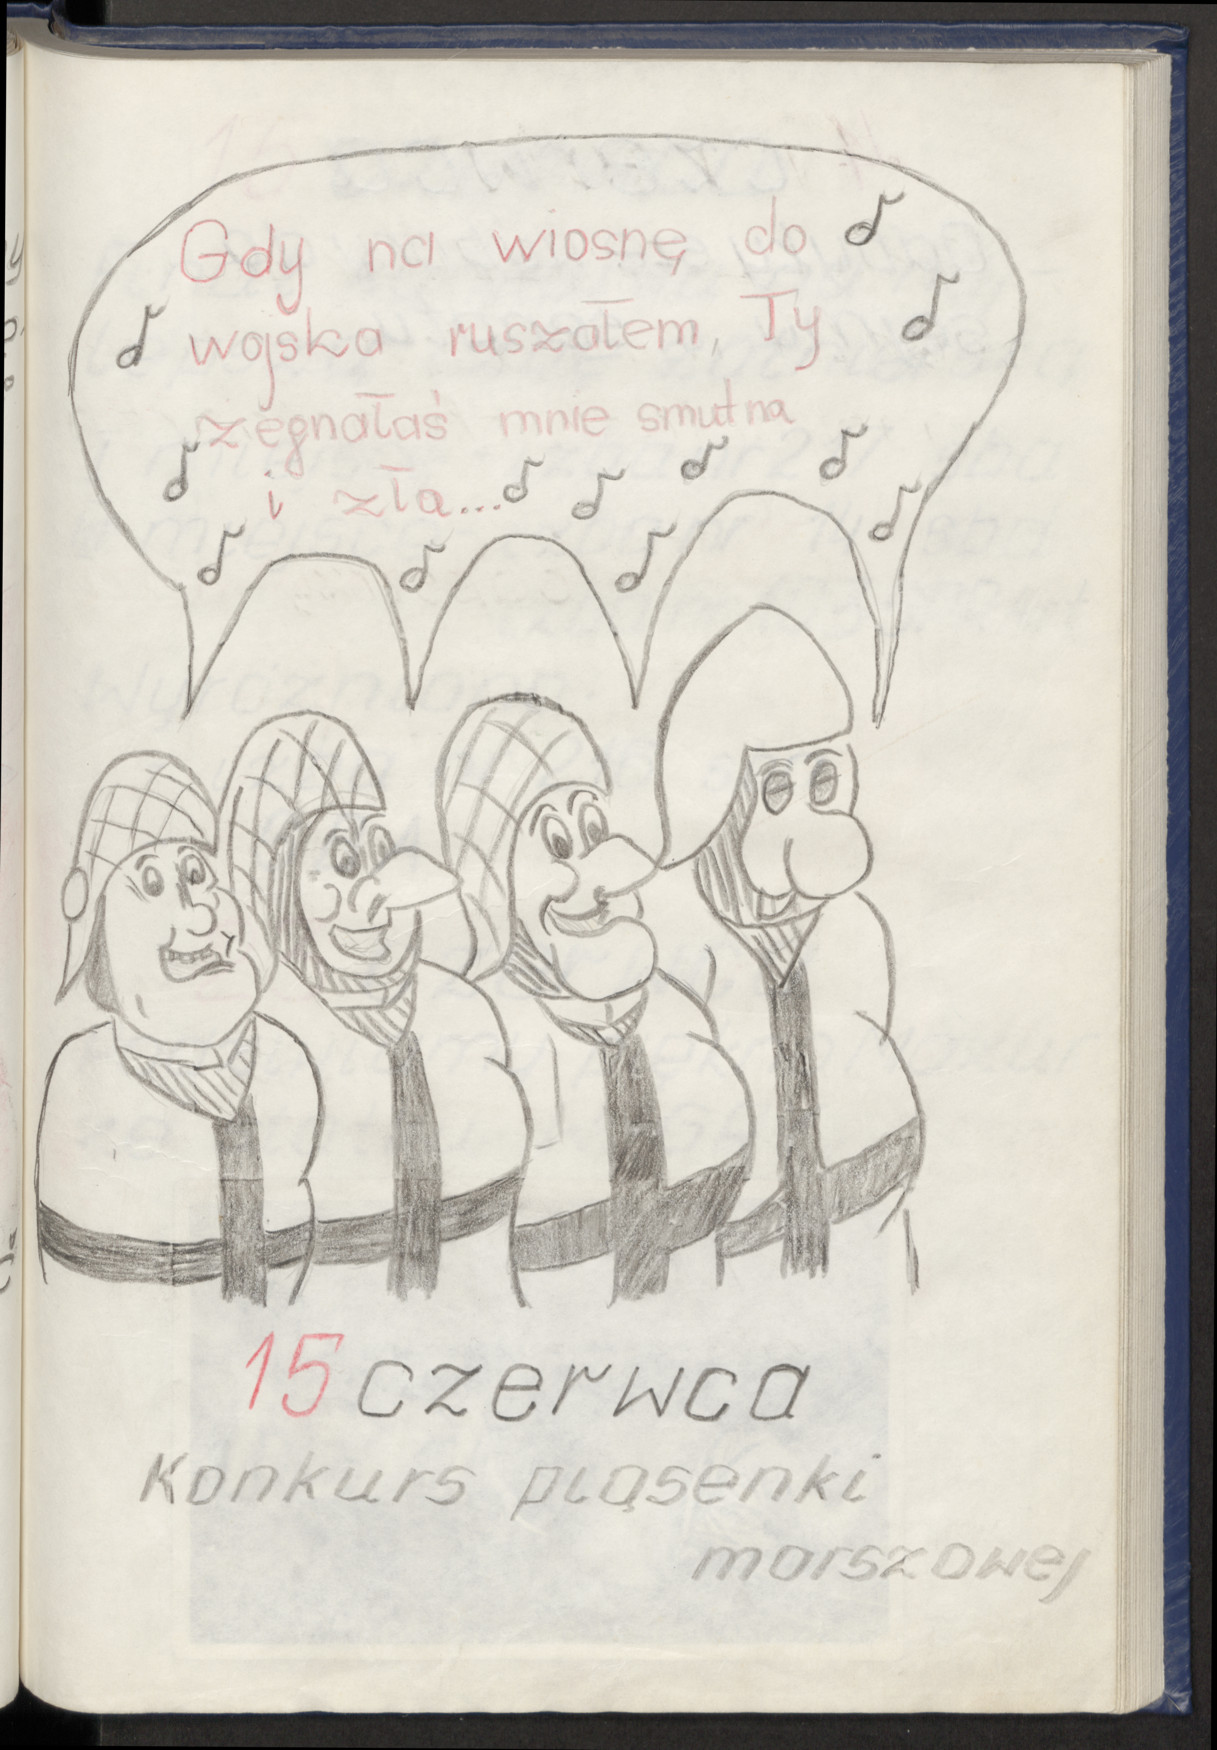 Gdy na wiosnę do
wojska ruszałem, Ty
żegnałaś mnie smutna
i zła...
15 czerwca
Konkurs piąsenki
marszowej